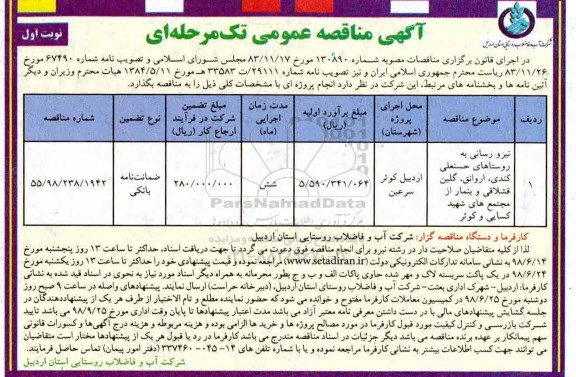 نوبت اول
آگهی مناقصه عمومی تک‌مرحله‌ای
شرکت آب و فاضلاب روستایی استان اردبیل
در اجرای قانون برگزاری مناقصات مصوبه شماره ۱۳۰۸۹۰ مورخ ۸۳/۱۱/۱۷ مجلس شورای اسلامی و تصویب نامه شماره ۶۷۴۹۰ مورخ
۸۳/۱۱/۲۶ ریاست محترم جمهوری اسلامی ایران و نیز تصویب نامه شماره ۲۹۱۱۱/ت ۳۳۵۸۳ هـ مورخ ۱۳۸۴/۵/۱۱ هیات محترم وزیران و دیگر
آئین نامه ها و بخشنامه های مرتبط، این شرکت در نظر دارد انجام پروژه ای با مشخصات کلی ذیل را به مناقصه بگذارد.
ردیف
موضوع مناقصه
محل اجرای پروژه (شهرستان)
مبلغ برآورد اولیه (ریال)
مدت زمان اجرایی (ماه)
مبلغ تضمین شرکت در فرآیند ارجاع کار (ریال)
نوع تضمین
شماره مناقصه
۱
نیرو رسانی به
روستاهای حسنعلی
کندی، اروانق، گلین
قشلاقی و ینمار از
مجتمع های شهید
کسایی و کوثر
اردبیل کوثر سرعین
۵/۵۹۰/۳۴۱/۰۶۴
شش
۲۸۰/۰۰۰/۰۰۰
ضمانت‌نامه بانکی
۵۵/۹۸/۲۳۸/۱۹۴۲
ParsNamadData
کارفرما و دستگاه مناقصه گزار: شرکت آب و فاضلاب روستایی استان اردبیل
لذا از کلیه متقاضیان صلاحیت دار در رشته نیرو برای انجام مناقصه فوق دعوت می گردد تا جهت دریافت اسناد، حداکثر تا ساعت ۱۳ روز پنجشنبه مورخ
۹۸/۶/۱۴ به نشانی سامانه تدارکات الکترونیکی دولت (www.setadiran.ir) مراجعه نموده و قیمت پیشنهادی خود را حداکثر تا ساعت ۱۳ روز یکشنبه مورخ
۹۸/۶/۲۴ در یک پاکت سربسته لاک و مهر شده حاوی پاکات الف و ب و ج بطور محرمانه به همراه دیگر اسناد مورد نیاز به نحوی در اسناد قید شده به نشانی
کارفرما: اردبیل- شهرک اداری بعثت- شرکت آب و فاضلاب روستای استان اردبیل، (دبیرخانه حراست) ارسال نمایند. پیشنهادهای واصله در ساعت ۹ صبح روز
دوشنبه مورخ ۹۸/۶/۲۵ در کمیسیون معاملات کارفرما مفتوح و خوانده می شود که حضور نماینده مطلع و تام الاختیار از طرف هر یک از پیشنهاددهندگان در
جلسه گشایش پیشنهادهای مالی با در دست داشتن معرفی نامه معتبر آزاد می باشد مدت اعتبار پیشنهادها تا پایان وقت اداری مورخ ۹۸/۹/۲۵ می باشد تایید
شرکت بازرسی و کنترل کیفیت مورد قبول کارفرما در مورد مصالح پروژه ها و خرید ها الزامی بوده و هزینه مربوطه و هزینه درج آگهی‌ها و کسورات قانونی
سهم پیمانکار بر عهده برنده مناقصه می باشد دیگر جزئیات در اسناد مناقصه مندرج می باشد کارفرما در رد یا قبول هر یک از پیشنهادها مختار است متقاضیان
می توانند جهت کسب اطلاعات بیشتر به نشانی کارفرما مراجعه نموده و یا با شماره تلفن های ۱۴- ۰۴۵- ۳۳۷۴۶۰ (دفتر امور پیمان) تماس حاصل فرمایند.
شرکت آب و فاضلاب روستایی استان اردبیل